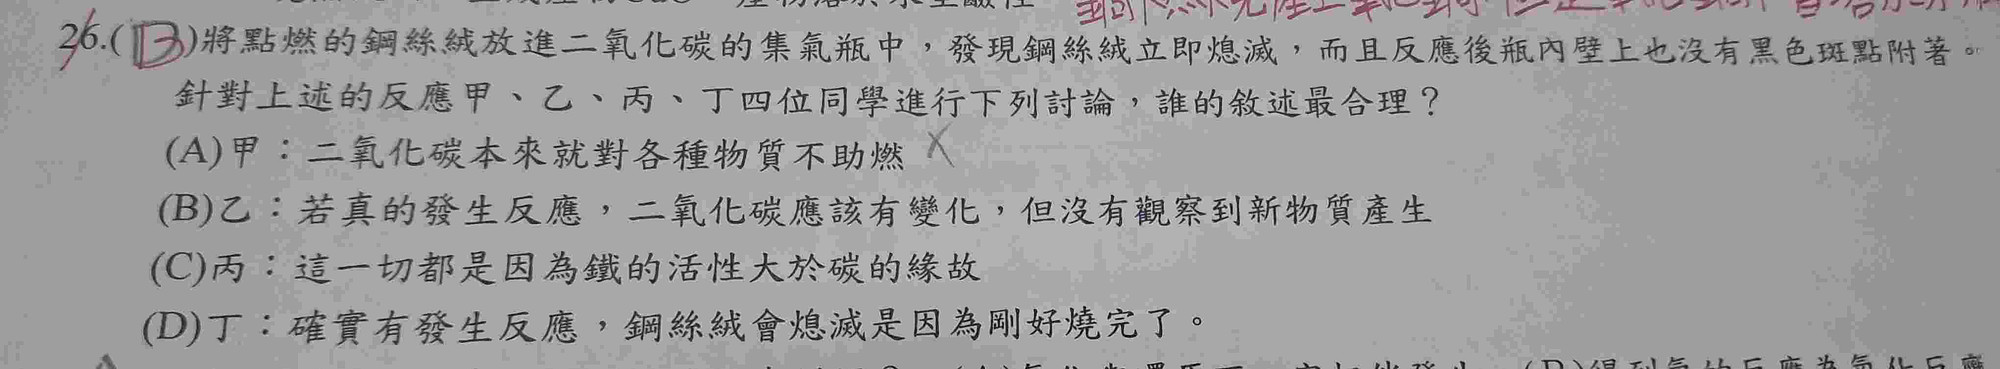 26.(B)將點燃的鋼絲絨放進二氧化碳的集氣瓶中，發現鋼絲絨立即熄滅，而且反應後瓶內壁上也沒有黑色斑點附著。
針對上述的反應甲、乙、丙、丁四位同學進行下列討論，誰的敘述最合理？
(A)甲：二氧化碳本來就對各種物質不助燃 X
(B)乙：若真的發生反應，二氧化碳應該有變化，但沒有觀察到新物質產生
(C)丙：這一切都是因為鐵的活性大於碳的緣故
(D)丁：確實有發生反應，鋼絲絨會熄滅是因為剛好燒完了。